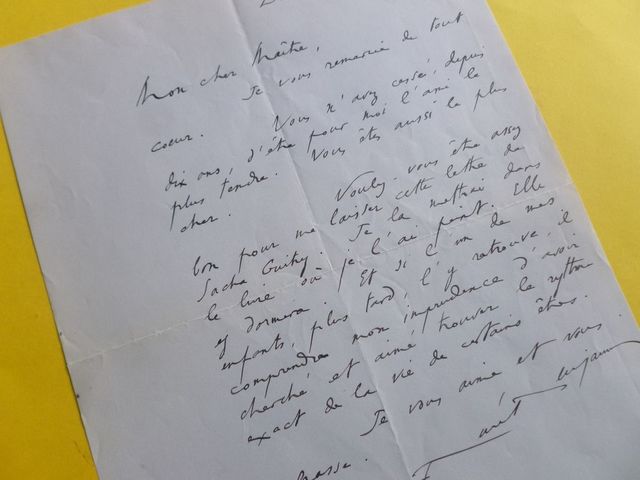 Mon cher Maître,
Je vous remercie de tout
coeur. Vous n'avez cessé, depuis
dix ans, d'être pour moi l'ami le
plus tendre. Vous êtes aussi le plus
cher.
Voulez-vous être assez
bon pour me laisser cette lettre de
Sacha Guitry. Je la mettrai dans
le livre où je l'ai peint. Elle
y dormira. Et si l'un de mes
enfants, plus tard, l'y retrouve, il
comprendra mon imprudence d'avoir
cherché et aimé trouver le rythme
exact de la vie de certains êtres.
Je vous aime et vous